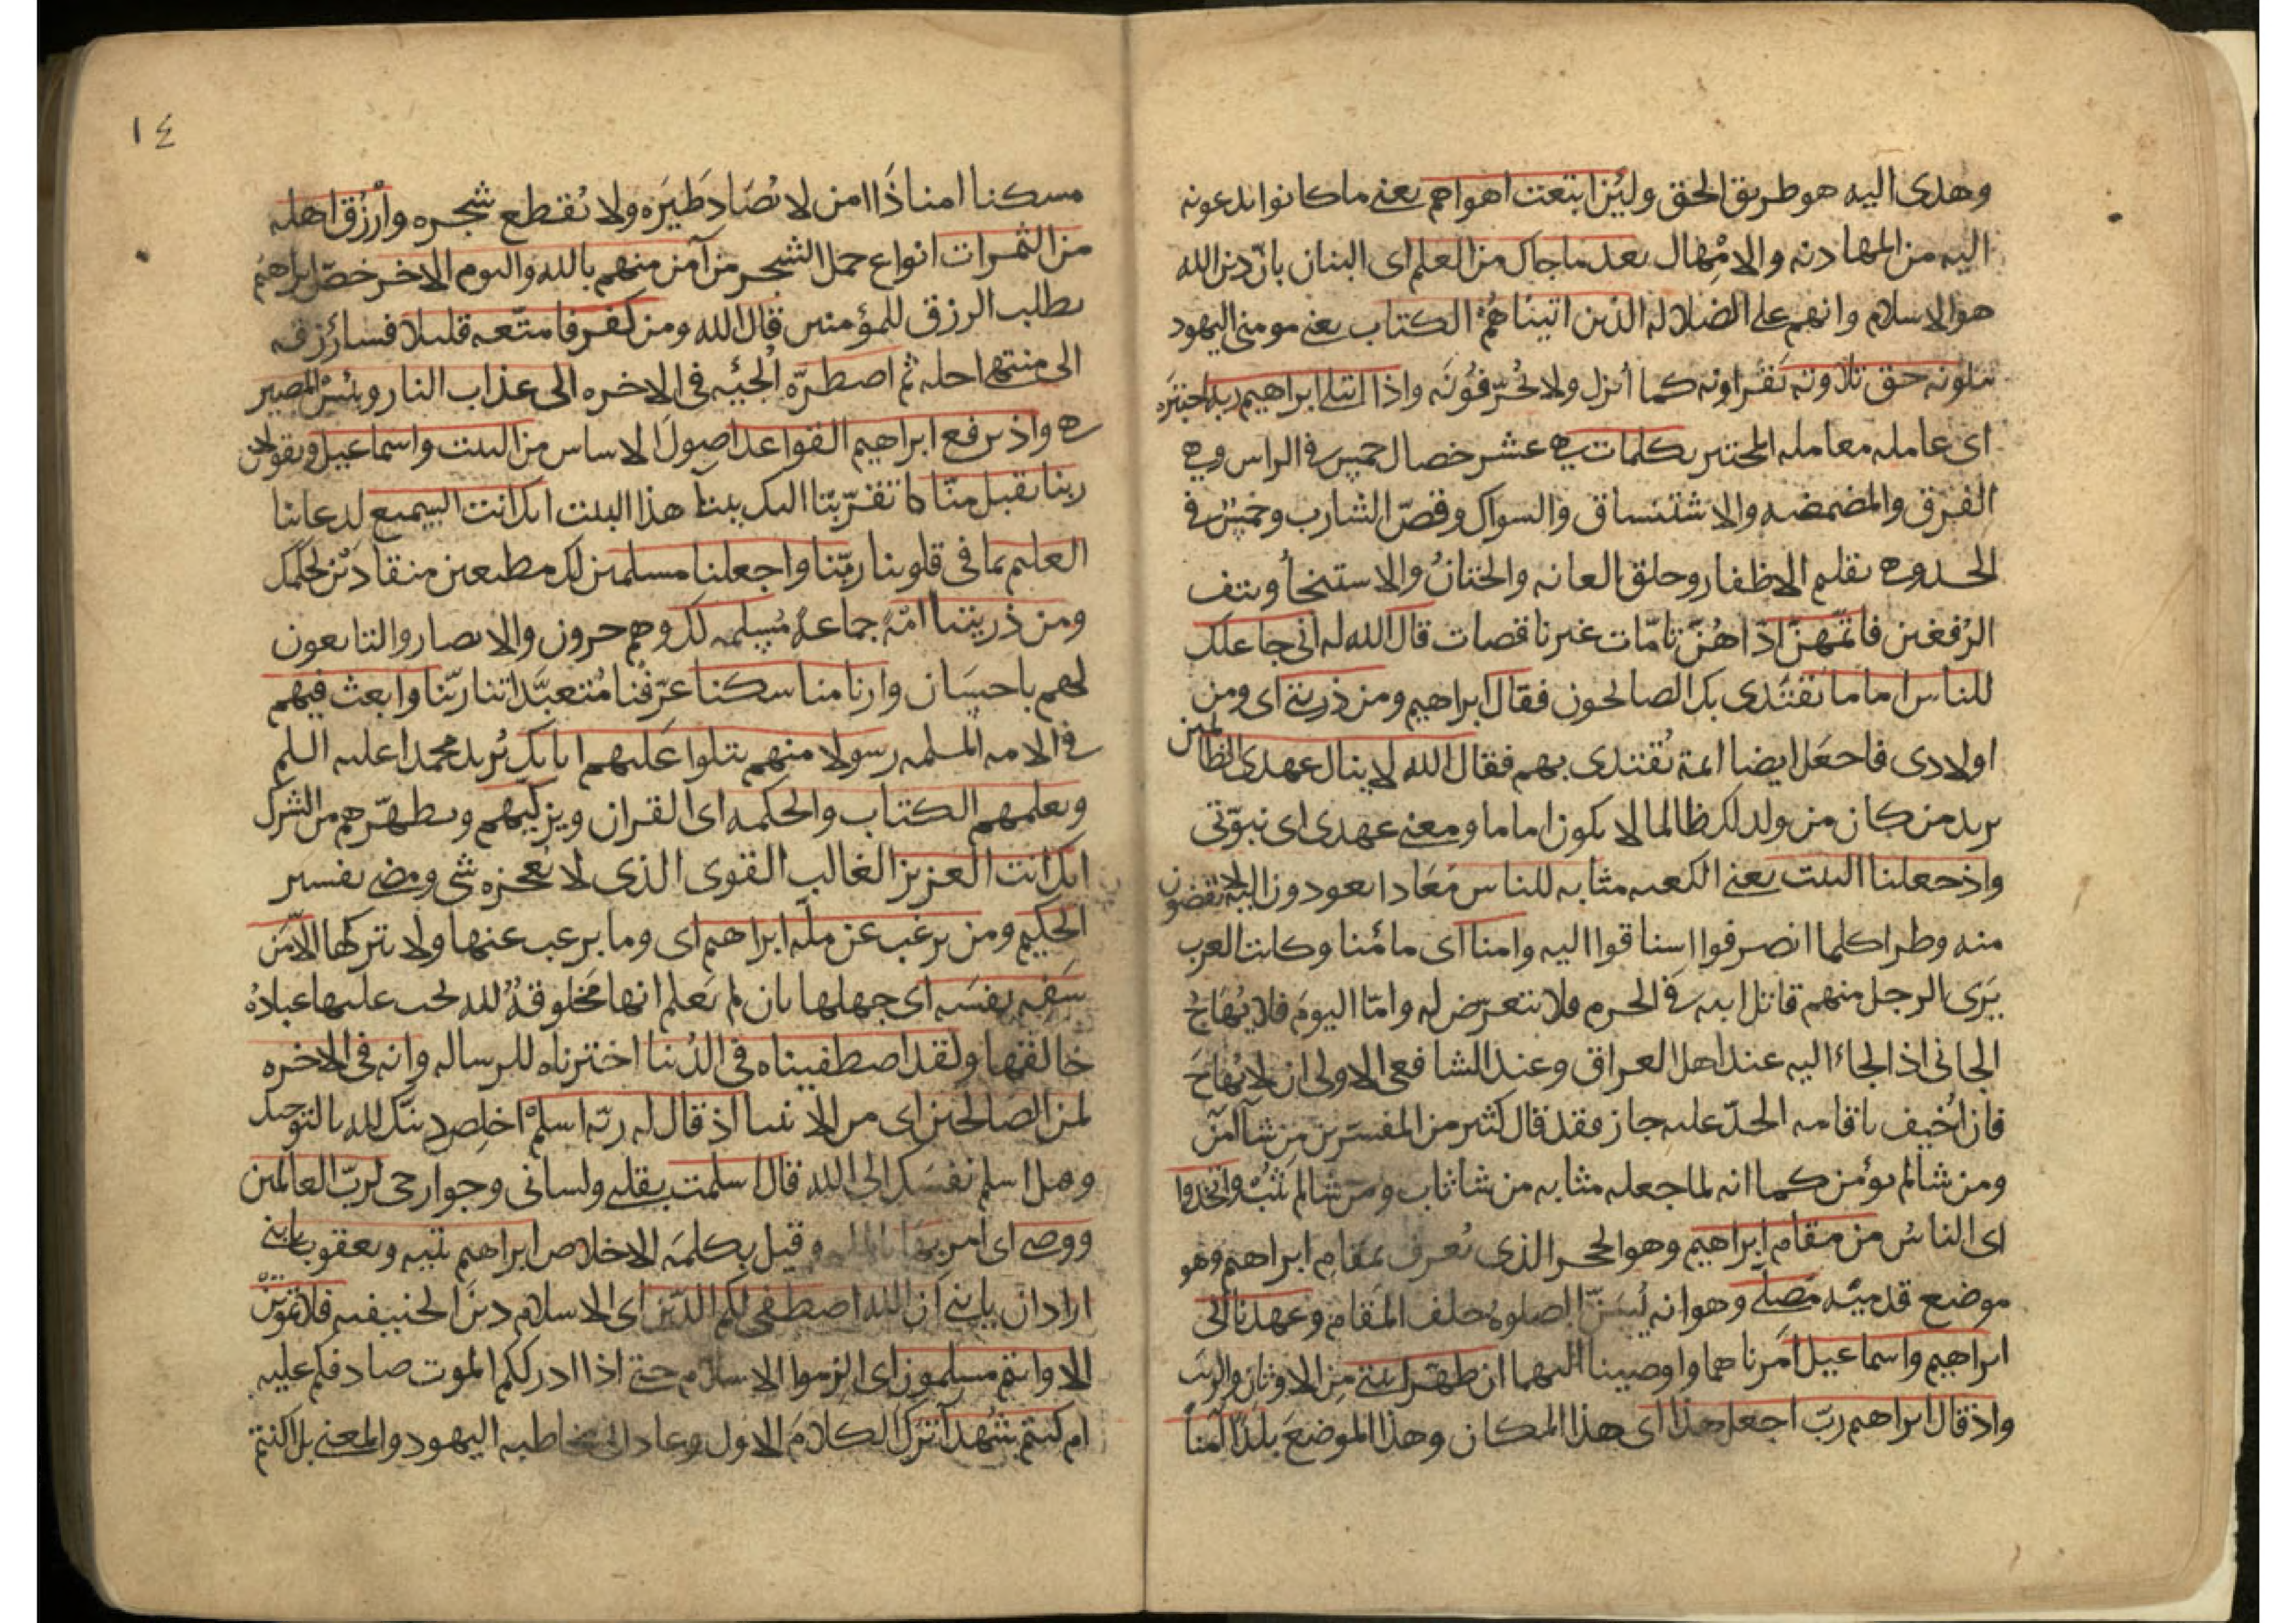 وهدى اليه هو طريق الحق ولئن ابتعت اهواهم يعني ما كانوا يدعونه
اليه من المهادنه والامهال بعد ما جاك من العلم اى البيان بان دين الله
هو الاسلام وانهم على الضلاله الذين اتيناهم الكتاب يعني مومني اليهود
يتلونه حق تلاوته يقراونه كما أنزل ولا يُحرّفُونَه واذ ابتلى ابراهيم ربه اختبَره
اى عامله معامله المختبر بكلمات هي عشر خصال خمس في الراس وهي
الفرق والمضمضه والاستنشاق والسواك وقصّ الشارب وخمس في
الجسد وهي تقليم الاظفار وحلق العانه والختانُ والاستنجأ ونتف
الرُفغين فاتمّهنّ اذّاهُنّ تامّات غير ناقصات قال الله له انى جاعلك
للناس اماما يَقتَدى بك الصالحون فقال ابراهيم ومن ذريتي اى ومن
اولادى فاجعل ايضا ايمة يُقتدى بهم فقال الله لا ينال عهدى الظالمين
يريد من كان من ولدك ظالما لا يكون اماما ومعنى عهدى اى نبوّتى
واذ جعلنا البيت يعني الكعبه مثابه للناس مَعَادا يعودون اليه لا يقضون
منه وطرا كلما انصرفوا اشتاقوا اليه وامنا اى مأمنا وكانت العرب
يَرَى الرجل منهم قاتل ابيه في الحرم فلا يتعرّض له وامّا اليومَ فلا يُهَاجُ
الجانى اذا لجاء اليه عند اهل العراق وعند الشافعى الاولى ان لا يُهَاجَ
فان اُخيف باقامه الحدّ عليه جاز وقد قال كثير من المفسّرين من شآ آمَنَ
ومن شا لم يؤمن كما انه لما جعله مثابه من شا ثاب ومن شا لم يَثُبْ واتخذوا
اى الناسُ من مقام ابراهيم وهو الحجر الذى يُعرف بمقام ابراهيم وهو
موضع قدميْه مُصلّى وهو انه يُسَنّ الصلوهُ خلف المقام وعهدنا الى
ابراهيم واسماعيل امرناهما واوصينا اليهما ان طهّرا بيتي من الاوثان والريَب
واذ قال ابراهيم ربّ اجعل هذا اى هذا المكان وهذا الموضعَ بلدًا آمناً
١٤
مسكنا امنا ذَا امن لا يُصَاد طَيرَه ولا يُقطع شجره وارْزُق اهله
من الثمرات انواع حمل الشجر من آمن منهم بالله واليوم الاخر خصّ ابراهيمُ
بطلب الرزق للمؤمنين قال الله ومن كفر فامتّعه قليلا فسأرزقه
الى منتهى اجله ثم اضطرّه اُلجئه فى الاخره الى عذاب النار وبئسَ المصير
هي واذ يرفع ابراهيم القواعد اصولَ الاساس من البيت واسماعيل ويقولان
ربنا تقبل منّا ما تقرّبنا اليك ببنآ هذا البيت انك انت السميع لدعاينا
العليم بما فى قلوبنا ربّنا واجعلنا مسلمين لك مطيعين منقادَيْن لحكمك
ومن ذريتنا امّة جماعهً مُسلمه لك وهم المهاجرون والانصار والتابعون
لهم باحسَان وارنا مناسكنا عرّفنا مُتعبَّداتنا ربّنا وابعث فيهم
في الامه المسلمه رسولا منهم يتلوا عليهم اياتك يُريد محمدا عليه السلم
ويعلمهم الكتاب والحكمه اى القران ويزكّيهم ويطهّرهم من الشرك
انك انت العزيز الغالب القوى الذى لا يُعجزه شى ومضى تفسير
الحكيم ومن يرغب عن مله ابراهيم اى وما يرغب عنها ولا يتركها الاّ مَن
سَفِه نفسَه اى جهلها بان لم يَعلم انها مَخلوقهٌ لله يجب عليها عبادهُ
خالقها ولقد اصطفيناه فى الدُنيا اخترناه للرساله وانه فى الاخره
لمن الصالحين اى من الانبيا اذ قال له ربّه اسلمْ اخلِص دينَك لله بالتوحيد
وقيل اسلم نفسَك الى الله قال اسلمت بقلبي ولسانى وجوارحى لربّ العالمين
ووصى اى امر بها وقيل بكلمَه الاخلاص ابراهيم بنيه ويعقوب يا بني
اراد ان يا بني ان الله اصطفى لكم الدّين اى الاسلام دينَ الحنيفيه فلا تموتنّ
الا وانتم مسلمون اى الزموا الاسلام حتى اذا ادرككم الموت صادفكم عليه
ام كنتم شُهدآ تَرَكَ الكلامَ الاول وعاد الى مخاطبه اليهود والمعنى بل اكنتم